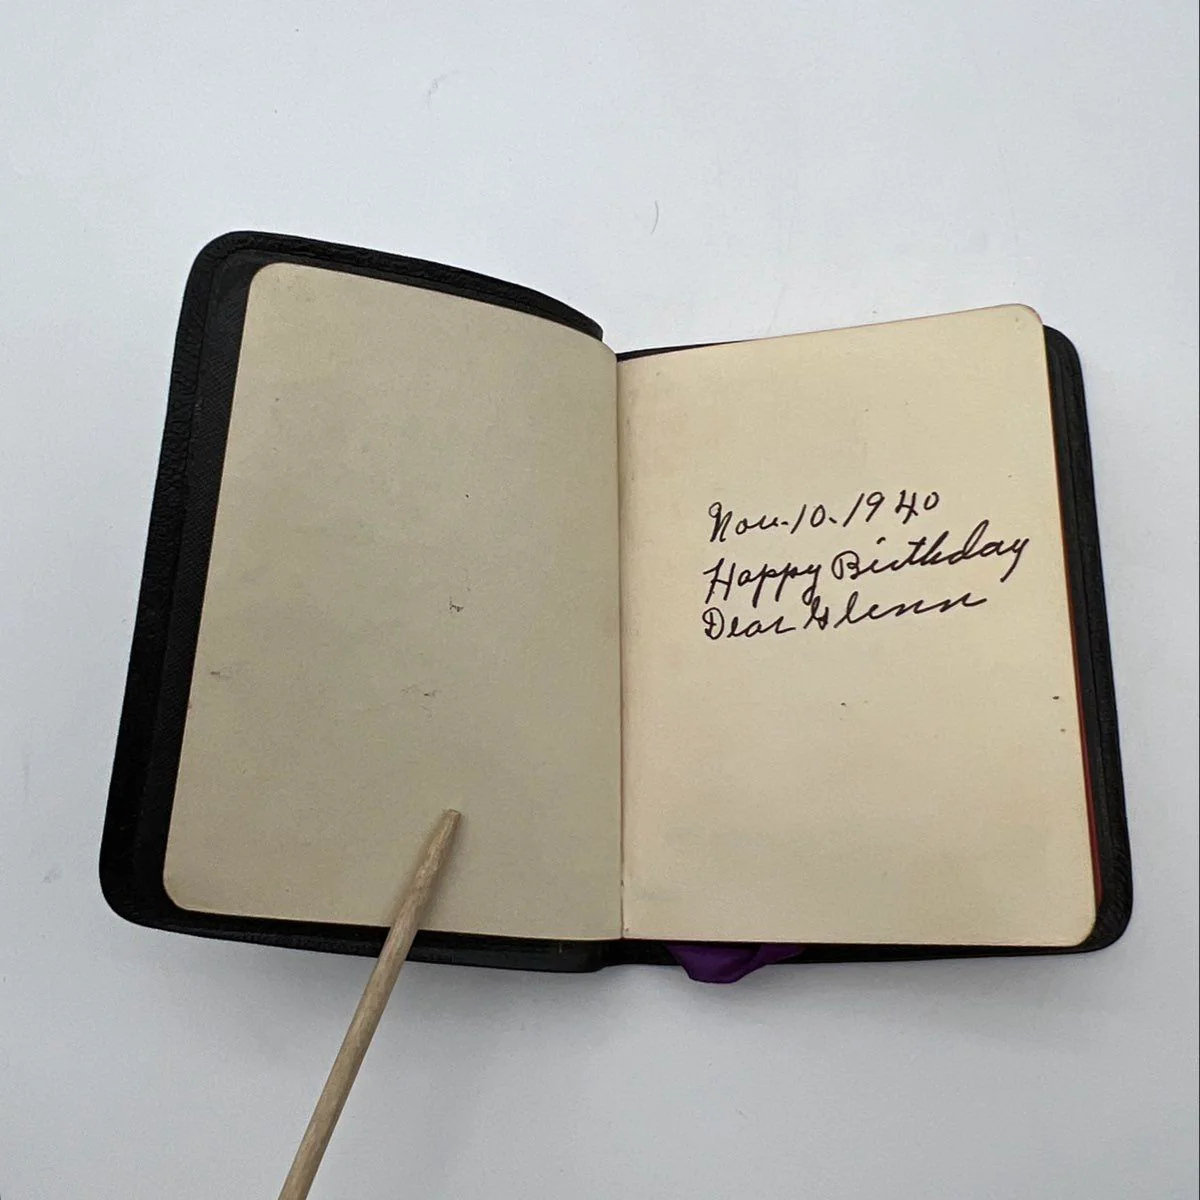 Nov. 10. 1940
Happy Birthday
Dear Glenn